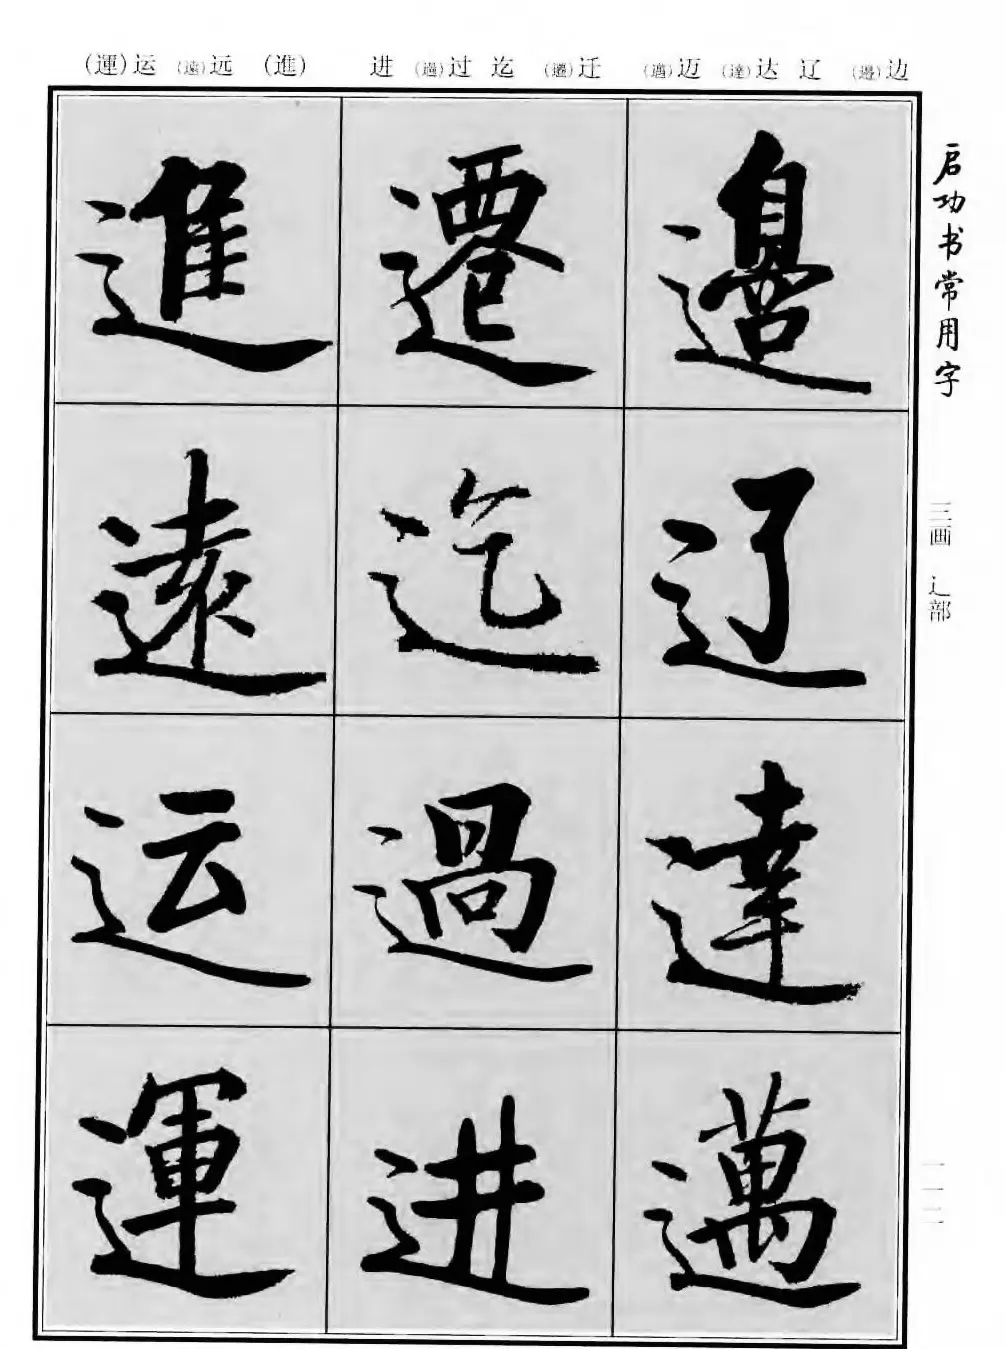 边(邊) 辽 达(達) 迈(邁) 迁(遷) 迄 过(過) 进 (進) 远(遠) 运(運)
启功书常用字
三画 辶部
一一二
邊
辽
達
邁
遷
迄
過
进
進
遠
运
運